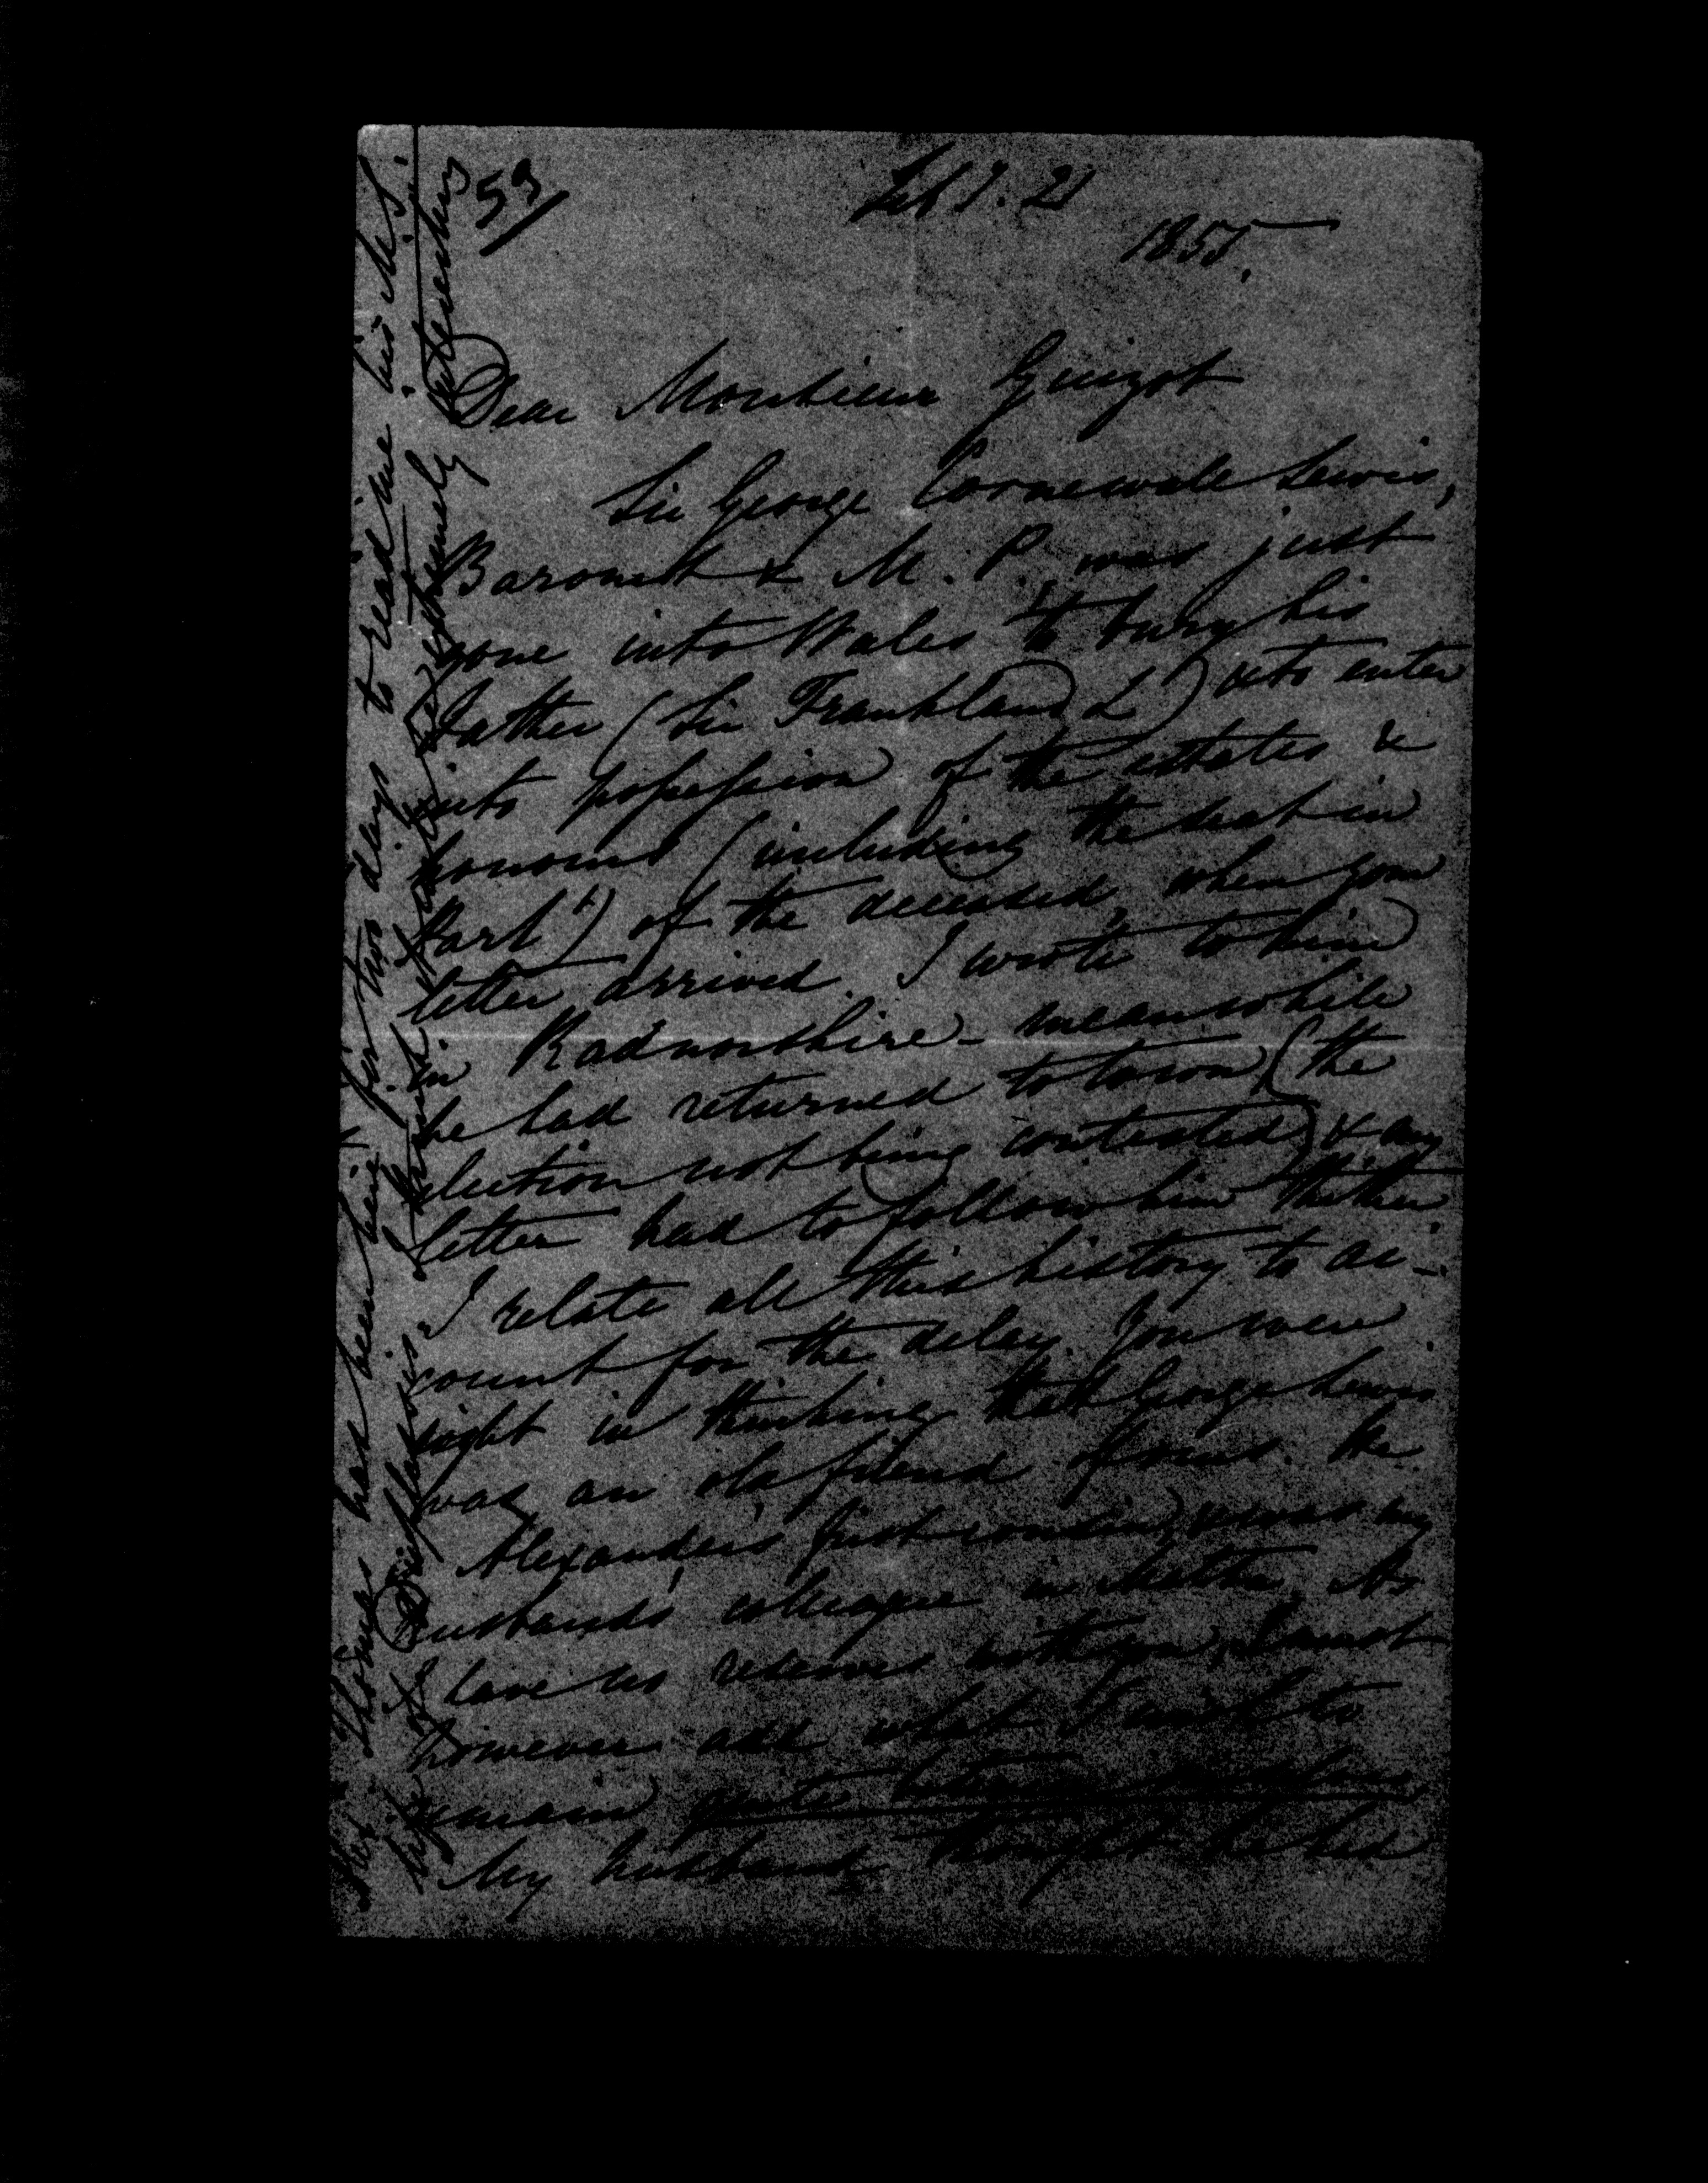 53
Feb y. 21
1855.
Dear Monsieur Guizot
Sir George Cornewall Lewis,
Baronet & M. P. was just
gone into Wales to bury his
Father (Sir Frankland L) & to enter
into possession of the estates &
honours (including the seat in
Parl t) of the deceased, when your
letter arrived. I wrote to him
in Radnorshire - meanwhile
he had returned to town (the
election not being contested) & my
letter had to follow him thither.
I relate all this history to ac-
count for the delay. You were
right in thinking that George Lewis
was an old friend of ours. He
Alexander's first cousin, & was my
husband's colleague in Malta. As
I have no reserves with you, I must
however add what I wish to
remain quite between ourselves.
My husband thought he had
Mr Thomas has been here for two days to read me his MS.
of Boislavis. I think it extremely